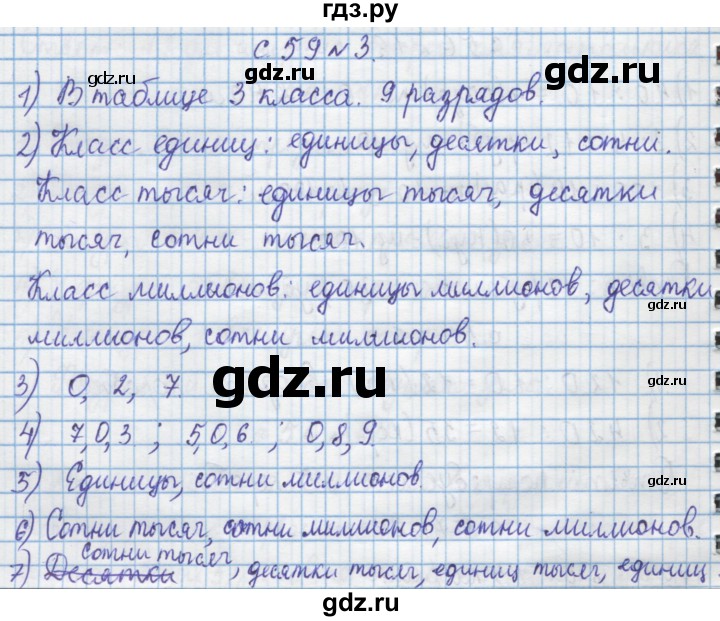 гдз.ру
с. 59 № 3.
1) В таблице 3 класса. 9 разрядов.
2) Класс единиц: единицы, десятки, сотни.
Класс тысяч: единицы тысяч, десятки
тысяч, сотни тысяч.
Класс миллионов: единицы миллионов, десятки
миллионов, сотни миллионов.
3) 0, 2, 7
4) 7,0,3 ; 5,0,6 ; 0,8,9
5) Единицы, сотни миллионов.
6) Сотни тысяч, сотни миллионов, сотни миллионов.
сотни тысяч
7) Десятки, десятки тысяч, единиц тысяч, единиц
gdz.ru
gdz.ru
gdz.ru
gdz.ru
gdz.ru
gdz.ru
gdz.ru
gdz.ru
gdz.ru
gdz.ru
gdz.ru
gdz.ru
gdz.ru